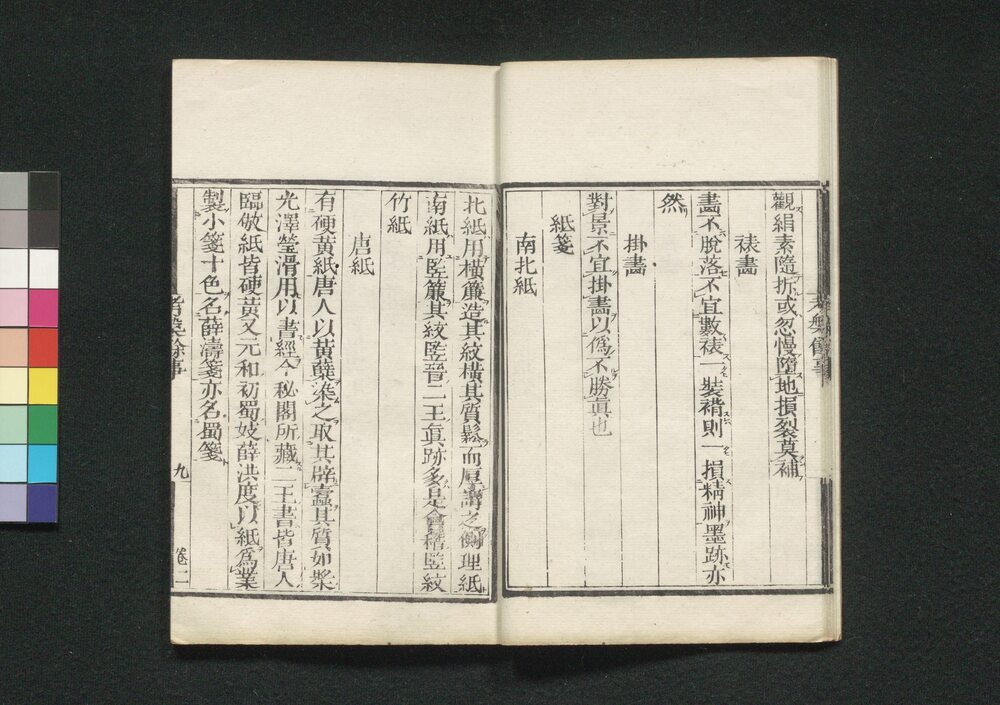 觀絹素隨折或忽慢墮地損裂莫補
裱畵
畵不脫落不宜數裱一裝褙則一損精神墨跡亦
然
掛畵
對景不宜掛畵以爲不勝眞也
紙箋
南北紙
北紙用橫簾造其紋橫其質鬆而厚謂之側理紙
南紙用竪簾其紋竪晉二王眞跡多是會稽竪紋
竹紙
唐紙
有硬黃紙唐人以黃蘗染之取其辟蠹其質如漿
光澤瑩滑用以書經今秘閣所藏二王書皆唐人
臨倣紙皆硬黃又元和初蜀妓薛洪度以紙爲業
製小箋十色名薛濤箋亦名蜀箋
考槃餘事
九
卷二